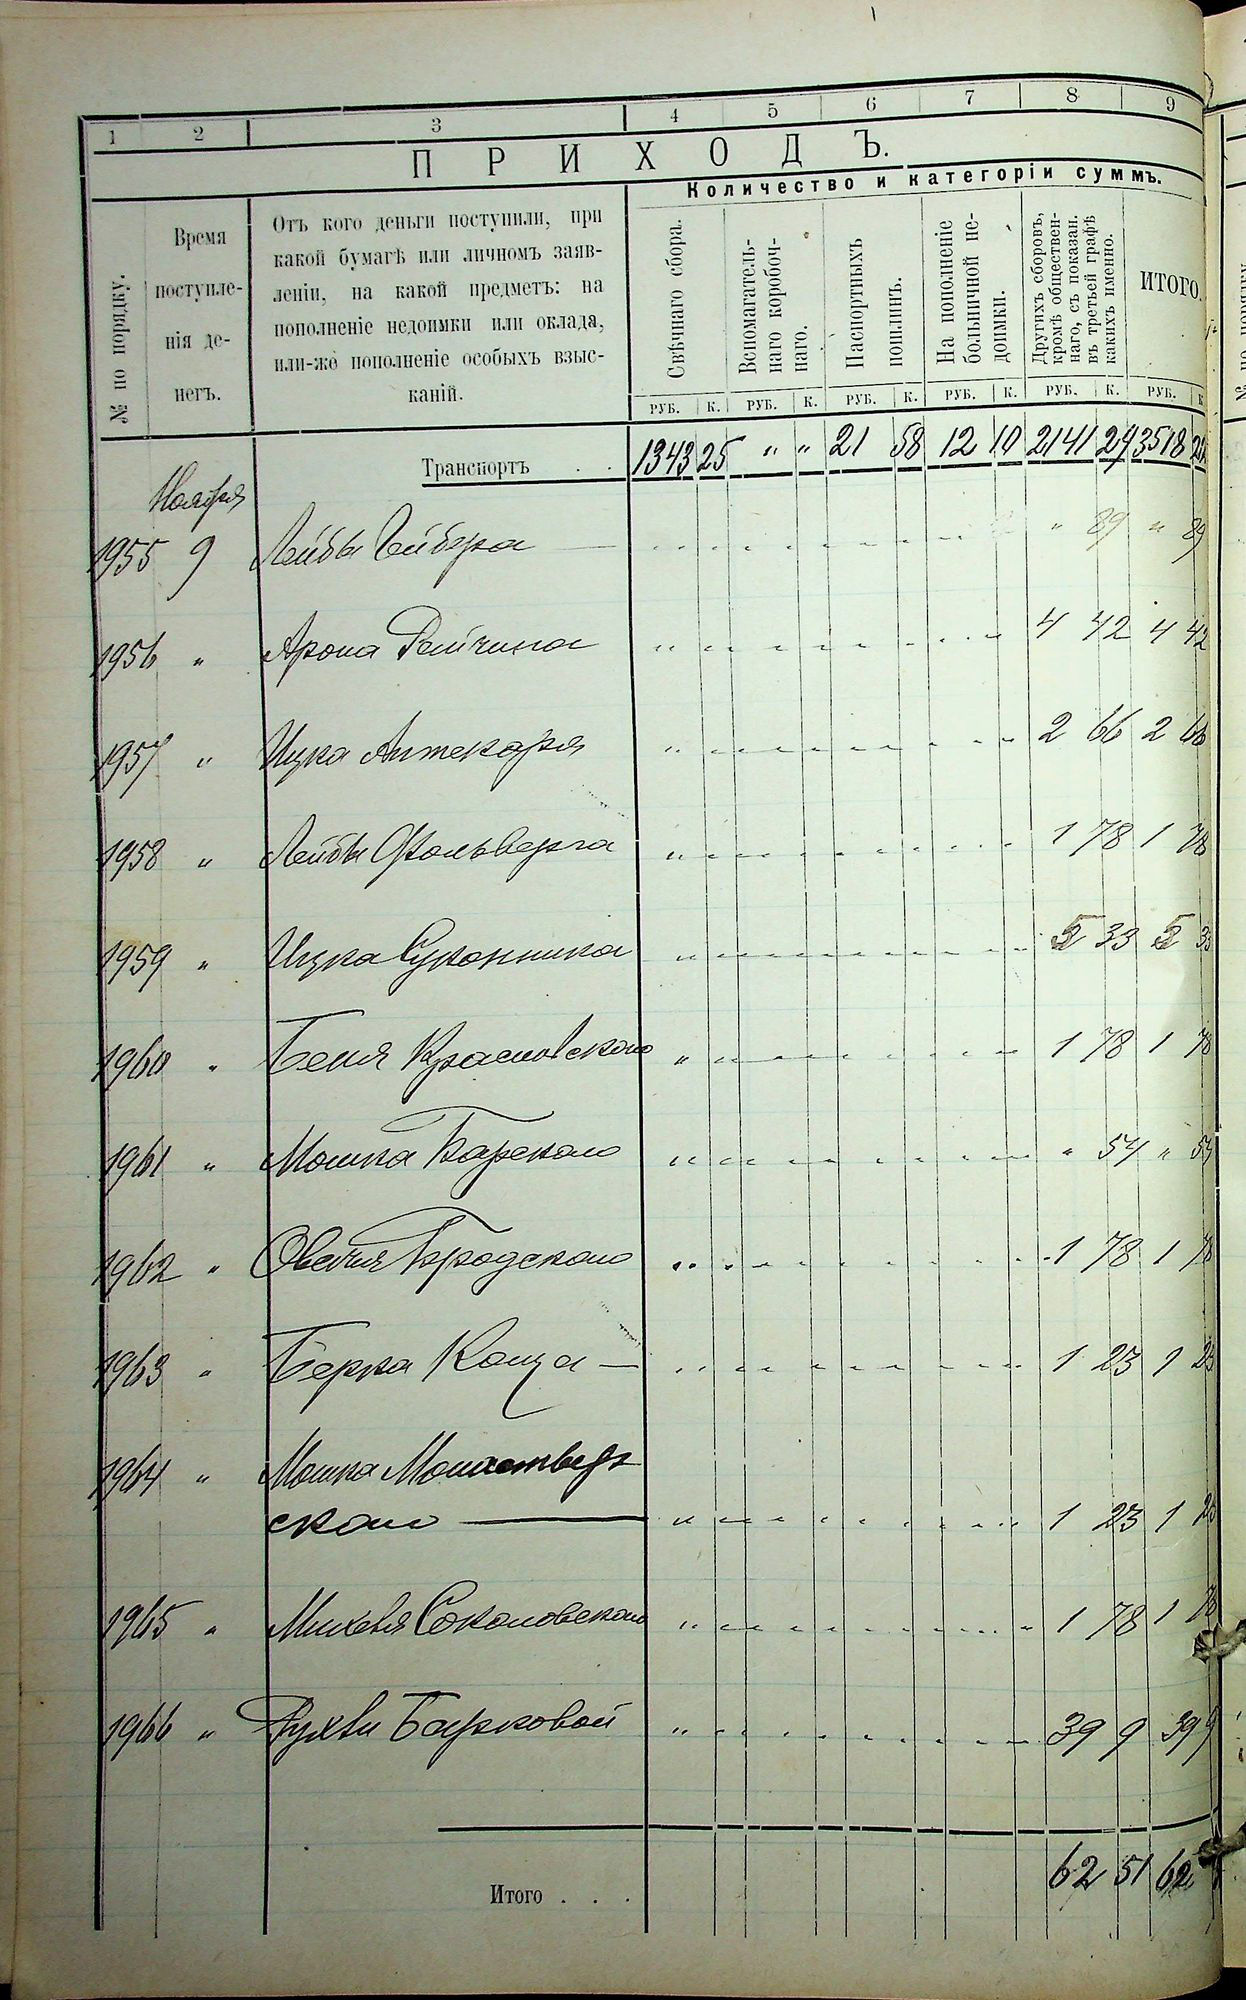 1 2 3 4 5 6 7 8 9
ПРИХОДЪ.
Количество и категоріи суммъ.
№ по порядку.
Время
поступле-
нія де-
негъ.
Отъ кого деньги поступили, при
какой бумагѣ или личномъ заяв-
леніи, на какой предметъ: на
пополненіе недоимки или оклада,
или-же пополненіе особыхъ взыс-
каній.
Свѣчнаго сбора.
Вспомагатель-
наго коробоч-
наго.
Паспортныхъ
пошлинъ.
На пополненіе
больничной не-
доимки.
Другихъ сборовъ,
кромѣ обществен-
наго, съ показан.
въ третьей графѣ
какихъ именно.
ИТОГО.
РУБ. К. РУБ. К. РУБ. К. РУБ. К. РУБ. К. РУБ. К
Транспортъ . . 1343 25 " " 21 58 12 10 2141 29 3518 22
Ноября
1955 9 Лейбы " 89 " 89
1956 " Арона 4 42 4 42
1957 " Ицка Аптекаря 2 66 2 66
1958 " Лейбы Фольверга 1 78 1 78
1959 " Ицка Суконника 5 33 5 33
1960 " Беня Красновскаго 1 78 1 78
1961 " Мошка Барскаго " 54 " 54
1962 " Овсея Бродскаго 1 78 1 78
1963 " Берка Каца — 1 23 1 23
1964 " Мошка
скаго — 1 23 1 23
1965 " Михеля Соколовскаго 1 78 1 78
1966 " Рухли Барковой 39 9 39 9
Итого . . . 62 51 62